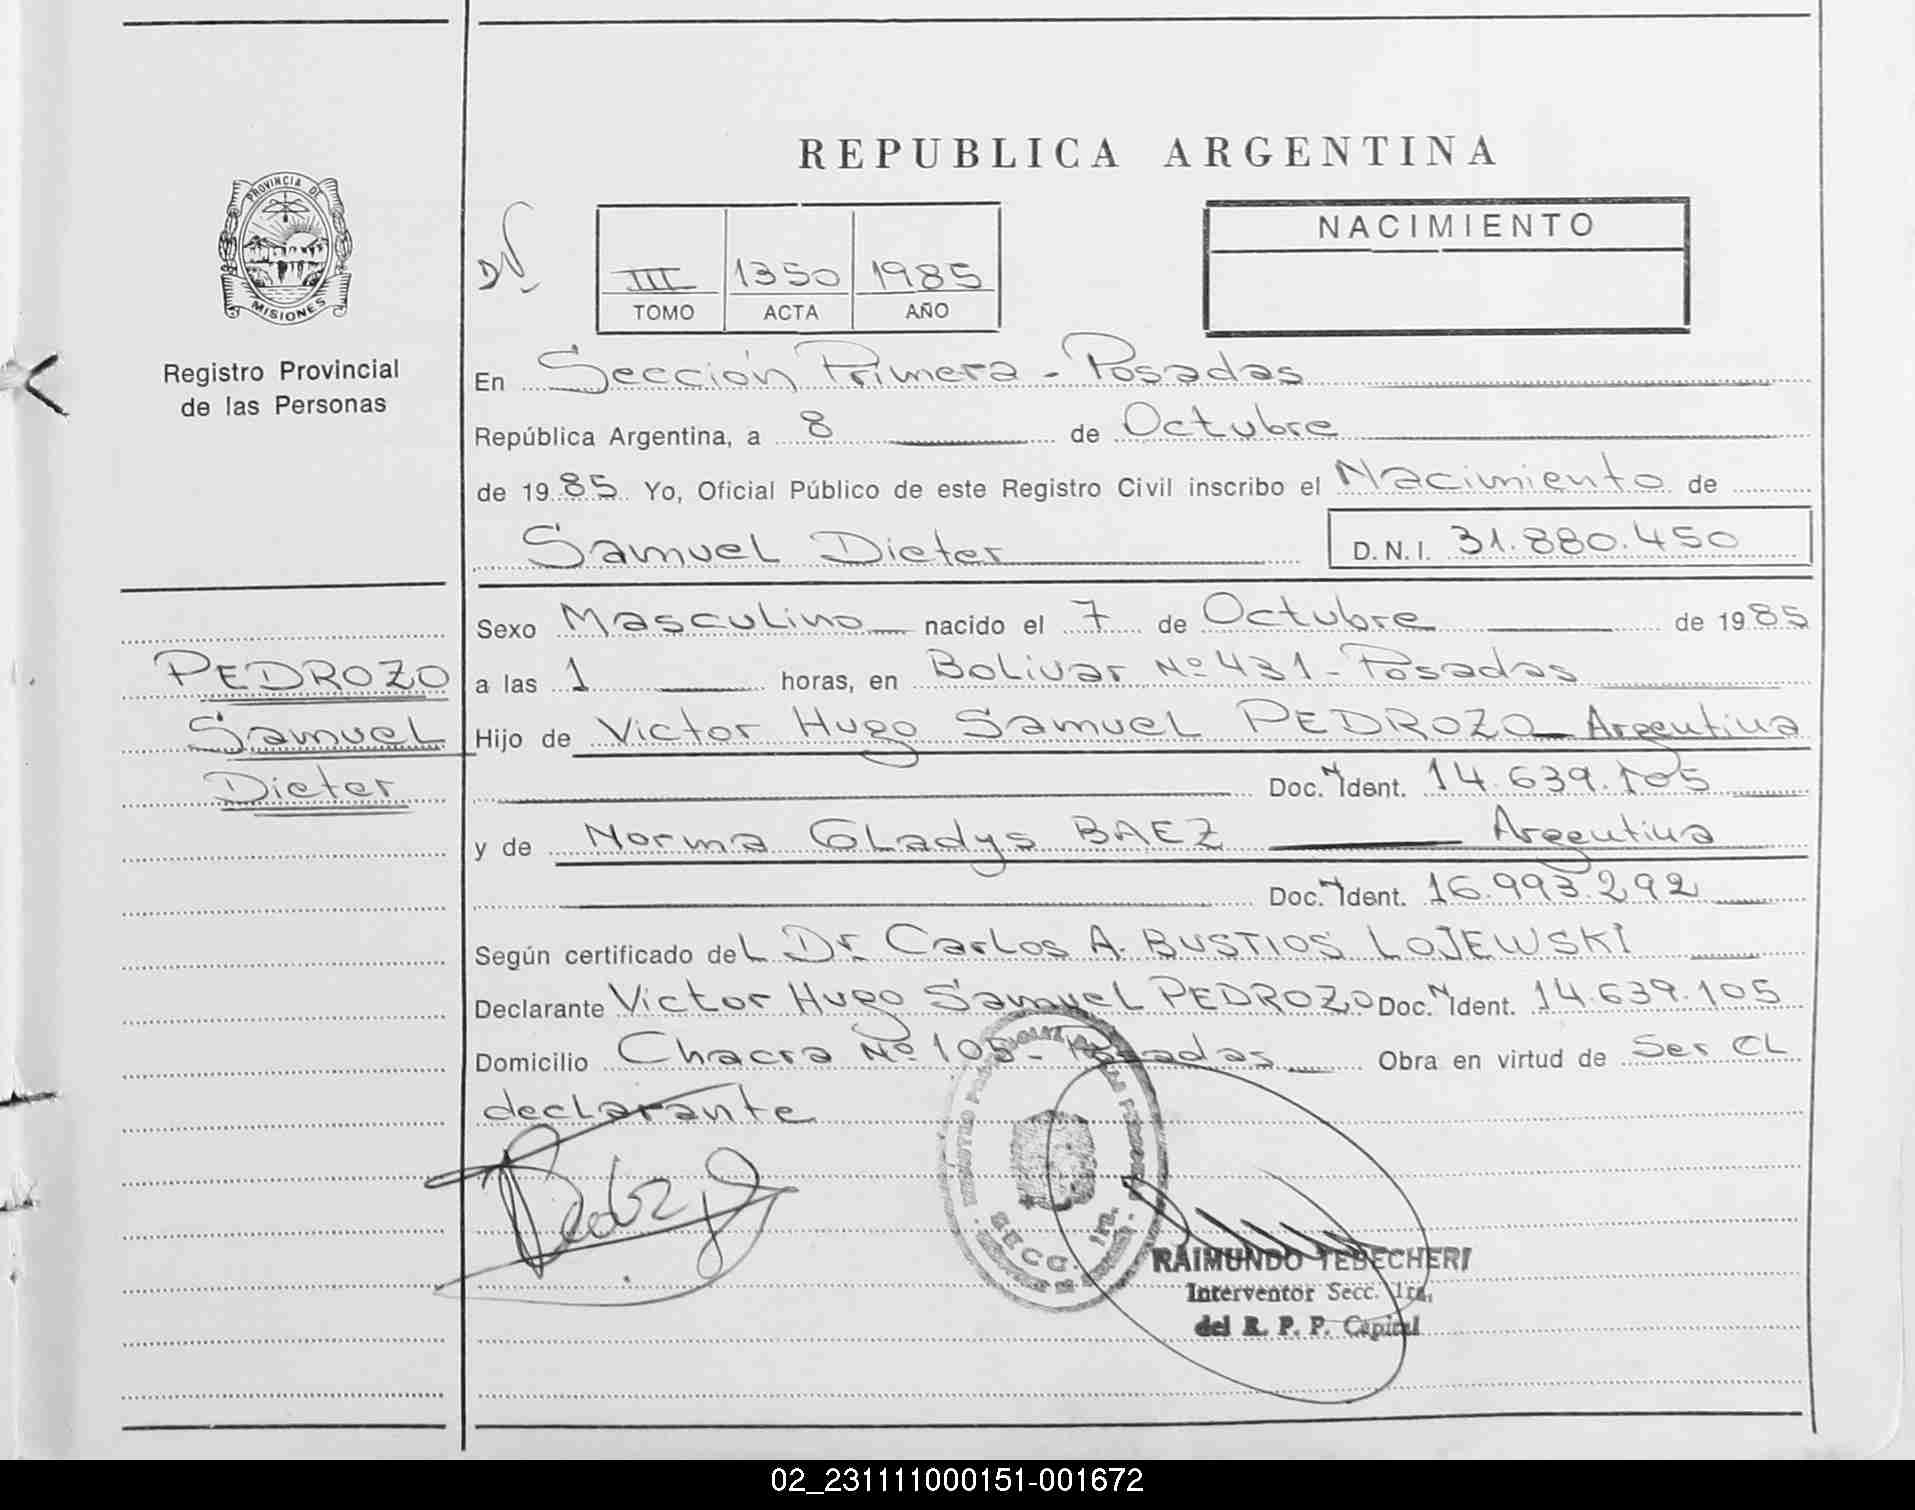 REPUBLICA ARGENTINA
PROVINCIA DE
MISIONES
Registro Provincial
de las Personas
III 1350 1985
TOMO ACTA AÑO
NACIMIENTO
En Sección Primera - Posadas
República Argentina, a 8 de Octubre
de 1985 Yo, Oficial Público de este Registro Civil inscribo el Nacimiento de
Samuel Dieter D.N.I. 31.880.450
PEDROZO
Samuel
Dieter
Sexo Masculino nacido el 7 de Octubre de 1985
a las 1 horas, en Bolivar Nº 431 - Posadas
Hijo de Victor Hugo Samuel PEDROZO Argentina
Doc. N Ident. 14.639.105
y de Norma Gladys BAEZ Argentina
Doc. N Ident. 16.993.292
Según certificado del Dr Carlos A. BUSTIOS LOJEWSKI
Declarante Victor Hugo Samuel PEDROZO Doc. N Ident. 14.639.105
Domicilio Chacra Nº 105 - Posadas Obra en virtud de Ser el
declarante
SECC. 1ra.
RAIMUNDO TEBECHERI
Interventor Secc. 1ra.
del R. P. P. Capital
02_231111000151-001672